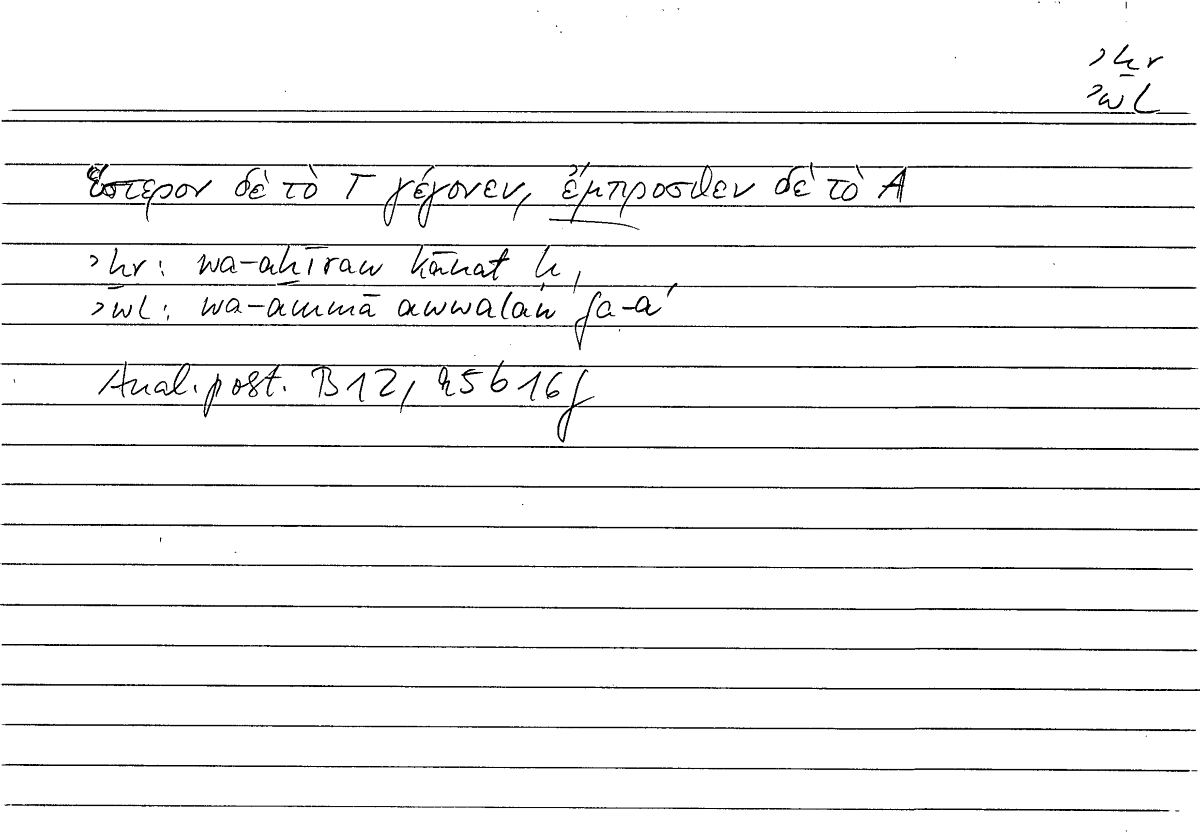 ʾḫr
ʾwl
ὕστερον δὲ τὸ Γ γέγονεν, ἔμπροσθεν δὲ τὸ Α
ʾḫr: wa-aḫīran kānat ḥ,
ʾwl: wa-ammā awwalan fa-a
Anal. post. B12, 95b16f